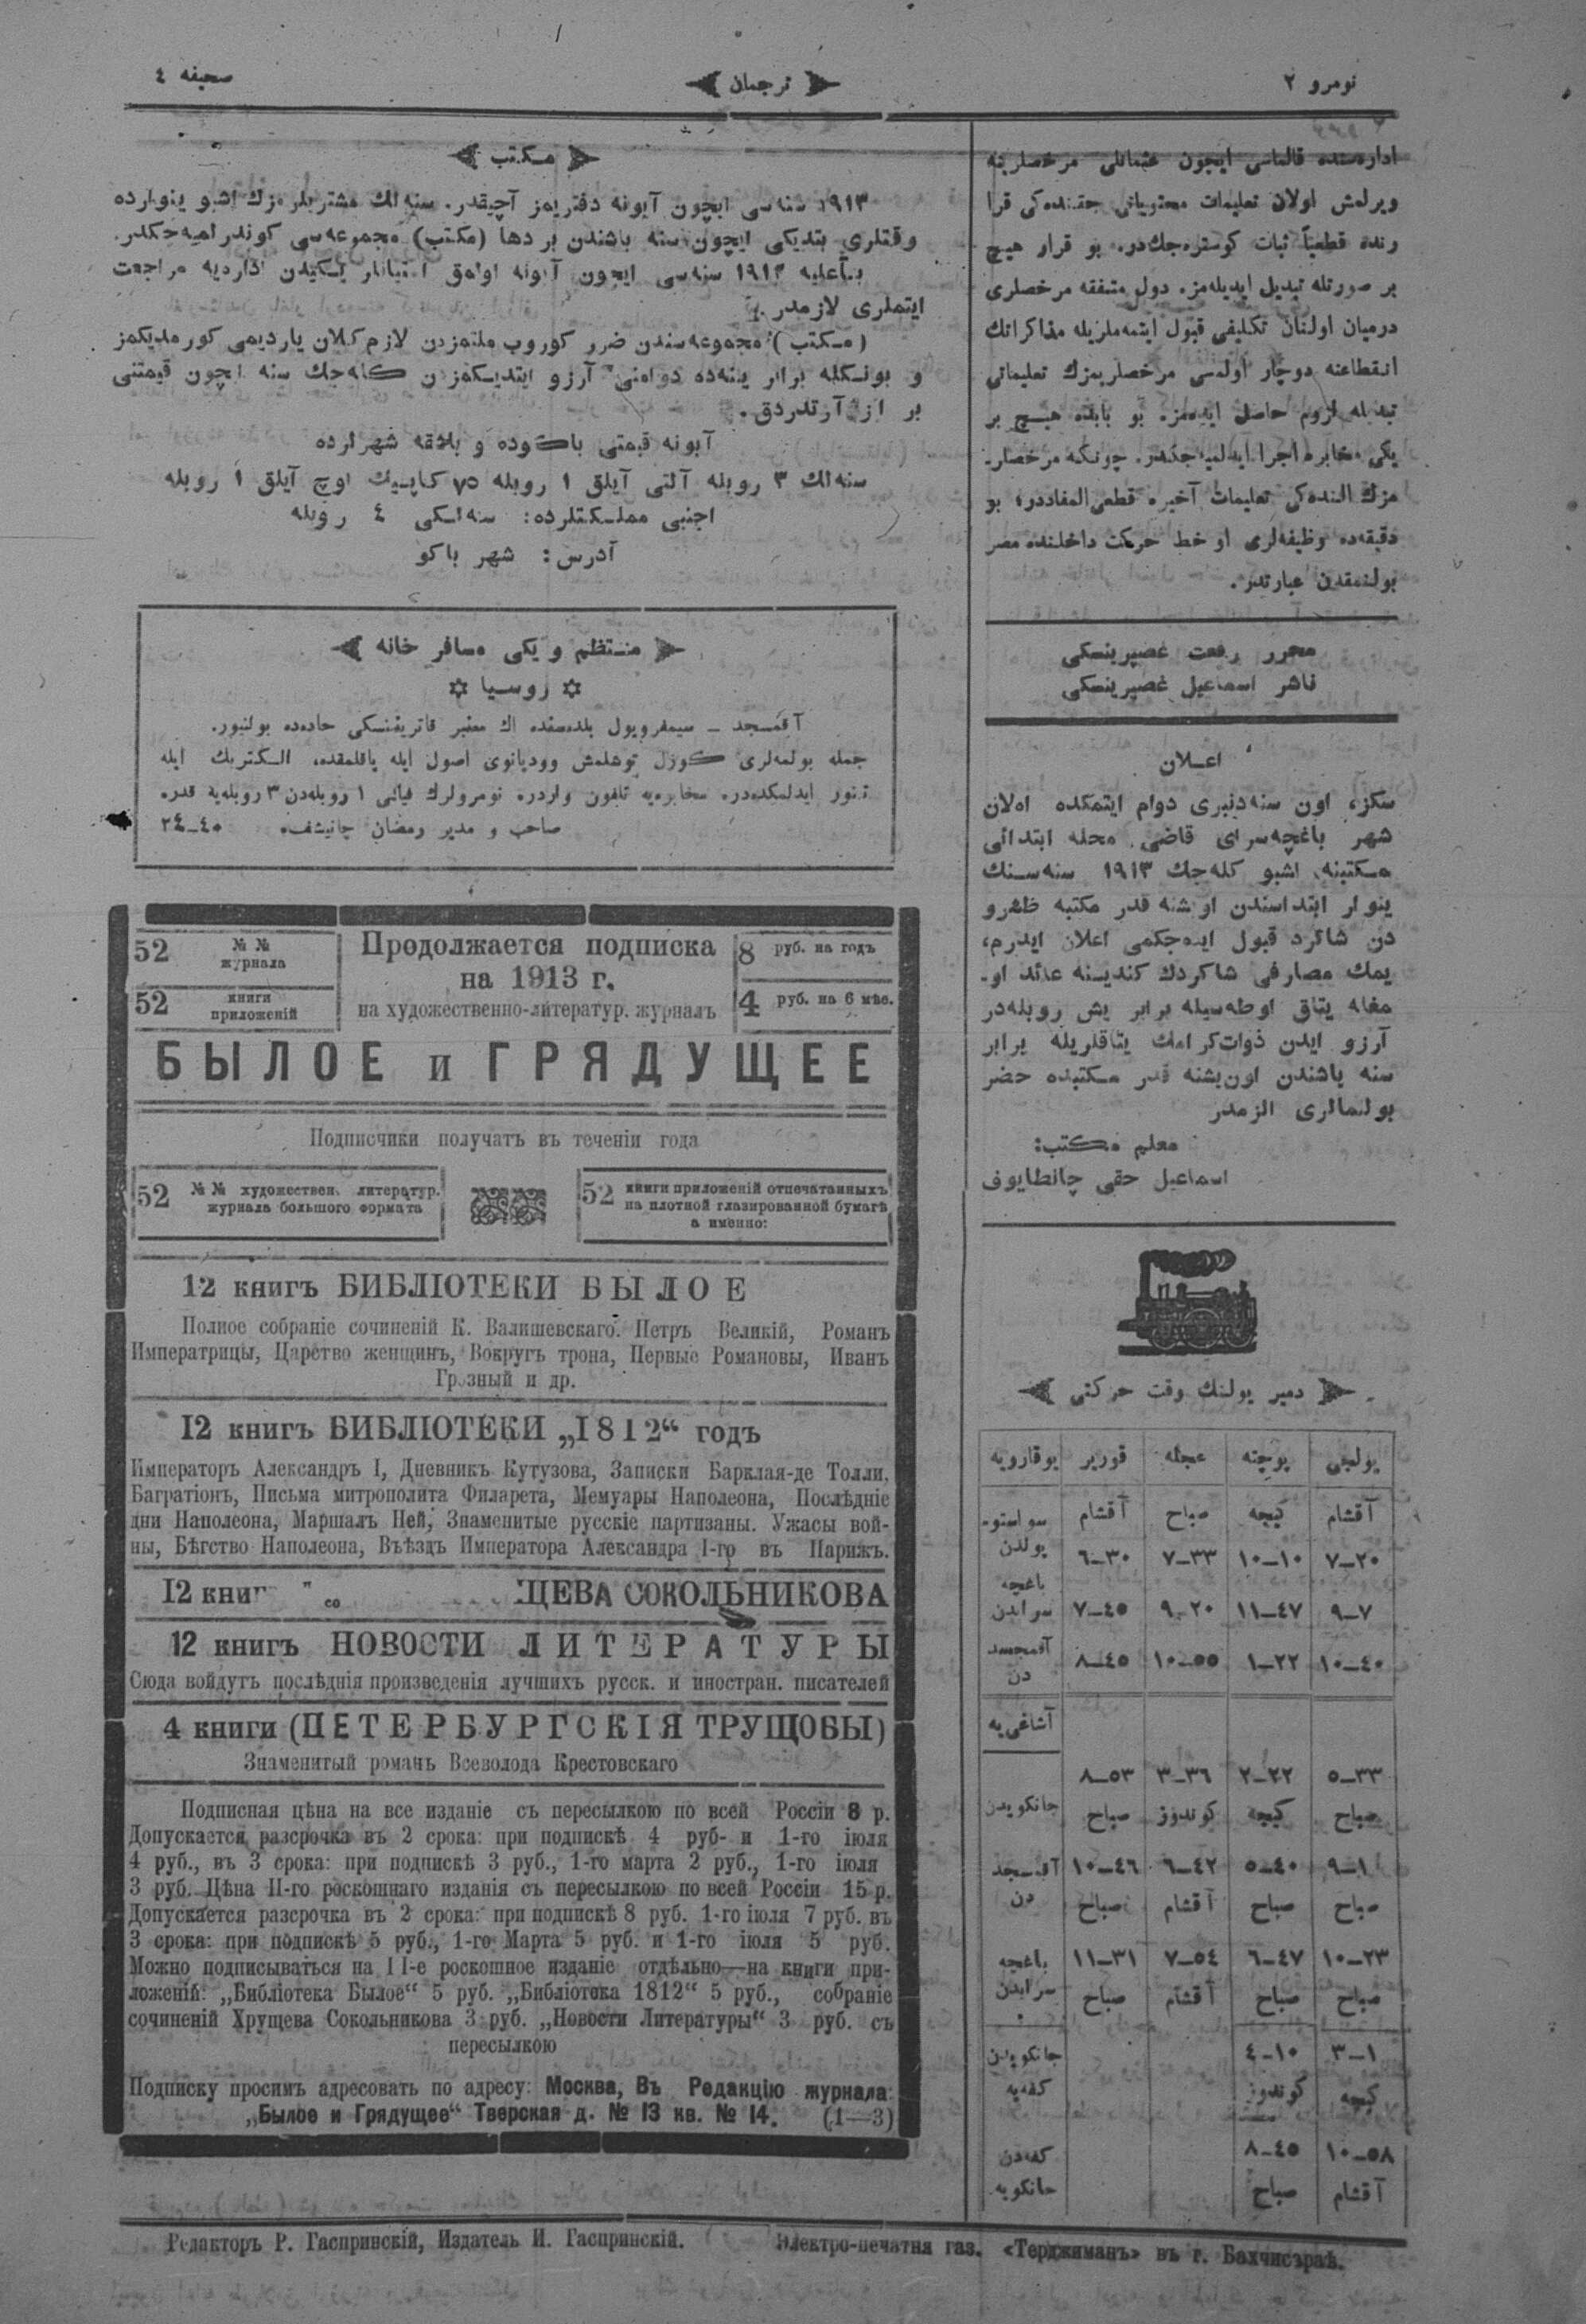 نومرو ٢
ترجمان
صحيفه ٤
اداره‌سنده قالماسى ايچون عثمانلى مرخصلرينه
ويرلمش اولان تعليمات محتوياتى حقنده‌كى قرا
رنده قطعياً ثبات كوستره‌جك‌در. بو قرار هيچ
بر صورتله تبديل ايديله‌مز. دول متفقه مرخصلرى
درميان اولنان تكليفى قبول ايتمه‌ملريله مذاكراتك
انقطاعنه دوچار اولمسى مرخصلريمزك تعليماتى
تبديله لزوم حاصل ايده‌مز. بو بابده هيچ بر
يكى مخابره اجرا ايدلميه‌جكدر. چونكه مرخصلر-
مزك النده‌كى تعليمات آخيره قطعى‌المفاددر؛ بو
دقيقه‌ده وظيفه‌لرى او خط حركت داخلنده مصر
بولنمقدن عبارتدر.
محرر رفعت غصپرينسكى
ناشر اسماعيل غصپرينسكى
اعلان
سكز، اون سنه‌دنبرى دوام ايتمكده اولان
شهر باغچه‌سراى قاضى محله ابتدائى
مكتبنه، اشبو كله‌جك ١٩١٣ سنه‌سنك
ينوار ابتداسندن اون‌بشنه قدر مكتبه
دن شاكرد قبول ايده‌جكمى اعلان ايدرم،
يمك مصارفى شاكردك كنديسنه عائد او-
مغله يتاق اوطه‌سيله برابر بش روبله‌در
آرزو ايدن ذوات‌كرامك يتاقلريله برابر
سنه باشندن اون‌بشنه قدر مكتبده حضر
بولنمالرى الزمدر
معلم مكتب:
اسماعيل حقى چانطايوف
دمير يولنك وقت حركتى
يوقارويه قورير عجله پوچته يولجى
سواستو- آقشام صباح كيجه آقشام
پولدن ٣٠–٦ ٣٣–٧ ١٠–١٠ ٢٠–٧
باغچه
سرايدن ٤٥–٧ ٢٠–٩ ٤٧–١١ ٧–٩
آقمسجد
دن ٤٥–٨ ٥٥–١٠ ٢٢–١ ٤٠–١٠
آشاغى‌يه
٥٣–٨ ٣٦–٣ ٢٢–٢ ٣٣–٥
جانكويدن صباح كوندوز كيجه صباح
آقمسجد ٤٦–١٠ ٤٢–٦ ٤٠–٥ ١–٩
دن صباح آقشام صباح صباح
باغچه ٣١–١١ ٥٤–٧ ٤٧–٦ ٢٣–١٠
سرايدن صباح آقشام صباح صباح
جانكويدن ١٠–٤ ١–٣
كفه‌يه كوندوز كيجه
كفه‌دن ٤٥–٨ ٥٨–١٠
جانكويه صباح آقشام
مكتب
١٩١٣ سنه‌سى ايچون آبونه دفتريمز آچيقدر. سنه‌لك مشتريلرمزك اشبو ينوارده
وقتلرى بتديكى ايچون سنه باشندن بردها (مكتب) مجموعه‌سى كوندرلميه‌جكدر.
بنأعليه ١٩١٣ سنه‌سى ايچون آبونه اولمق ايستيانلر يكيدن اداريه مراجعت
ايتملرى لازمدر.
(مكتب) مجموعه‌سندن ضرر كوروب ملتمزدن لازم كلان يارديمى كورمديكمز
و بونكله برابر ينه‌ده دوامنى آرزو ايتديكمزدن كله‌جك سنه ايچون قيمتنى
بر از آرتدردق.
آبونه قيمتى باكوده و بلاقه شهرلرده
سنه‌لك ٣ روبله آلتى آيلق ١ روبله ٧٥ كاپيك اوچ آيلق ١ روبله
اجنبى مملكتلرده: سنه‌لكى ٤ روبله
آدرس: شهر باكو
منتظم و يكى مسافر خانه
روسيا
آقمسجد – سيمفروپول بلده‌سنده اك معتبر جاده‌ده بولنيور.
جمله بولمه‌لرى كوزل توشلمش وودپانوى اصول ايله ياقلمقده، الكتريك ايله
تنور ايدلمكده‌در. مخابره‌يه تلفون واردر. نومرولرك فياتى ١ روبله‌دن ٣ روبله‌يه قدر.
صاحب و مدير رمضان چانيشف. ٤٠–٢٤
52 №№ журнала
52 книги приложеній
Продолжается подписка
на 1913 г.
на художественно-литератур. журналъ
8 руб. на годъ
4 руб. на 6 мѣс.
БЫЛОЕ и ГРЯДУЩЕЕ
Подписчики получатъ въ теченіи года
52 №№ художествен. литератур.
журнала большого формата
52 книги приложеній отпечатанныхъ
на плотной глазированной бумагѣ
а именно:
12 книгъ БИБЛІОТЕКИ БЫЛОЕ
Полное собраніе сочиненій К. Валишевскаго. Петръ Великій, Романъ
Императрицы, Царство женщинъ, Вокругъ трона, Первые Романовы, Иванъ
Грозный и др.
12 книгъ БИБЛІОТЕКИ „1812“ годъ
Императоръ Александръ I, Дневникъ Кутузова, Записки Барклая-де Толли,
Багратіонъ, Письма митрополита Филарета, Мемуары Наполеона, Послѣдніе
дни Наполеона, Маршалъ Ней, Знаменитые русскіе партизаны. Ужасы вой-
ны, Бѣгство Наполеона, Въѣздъ Императора Александра I-го въ Парижъ.
12 книг со ЩЕВА СОКОЛЬНИКОВА
12 книгъ НОВОСТИ ЛИТЕРАТУРЫ
Сюда войдутъ послѣднія произведенія лучшихъ русск. и иностран. писателей
4 книги (ПЕТЕРБУРГСКІЯ ТРУЩОБЫ)
Знаменитый романъ Всеволода Крестовскаго
Подписная цѣна на все изданіе съ пересылкою по всей Россіи 8 р.
Допускается разсрочка въ 2 срока: при подпискѣ 4 руб- и 1-го іюля
4 руб., въ 3 срока: при подпискѣ 3 руб., 1-го марта 2 руб., 1-го іюля
3 руб. Цѣна II-го роскошнаго изданія съ пересылкою по всей Россіи 15 р.
Допускается разсрочка въ 2 срока: при подпискѣ 8 руб. 1-го іюля 7 руб. въ
3 срока: при подпискѣ 5 руб., 1-го Марта 5 руб. и 1-го іюля 5 руб.
Можно подписываться на II-е роскошное изданіе отдѣльно—на книги при-
ложеній: „Библіотека Былое“ 5 руб. „Библіотека 1812“ 5 руб., собраніе
сочиненій Хрущева Сокольникова 3 руб. „Новости Литературы“ 3 руб. съ
пересылкою
Подписку просимъ адресовать по адресу: Москва, Въ Редакцію журнала:
„Былое и Грядущее“ Тверская д. № 13 кв. № 14. (1—3)
Редакторъ Р. Гаспринскій, Издатель И. Гаспринскій. Электро-печатня газ. «Терджиманъ» въ г. Бахчисараѣ.